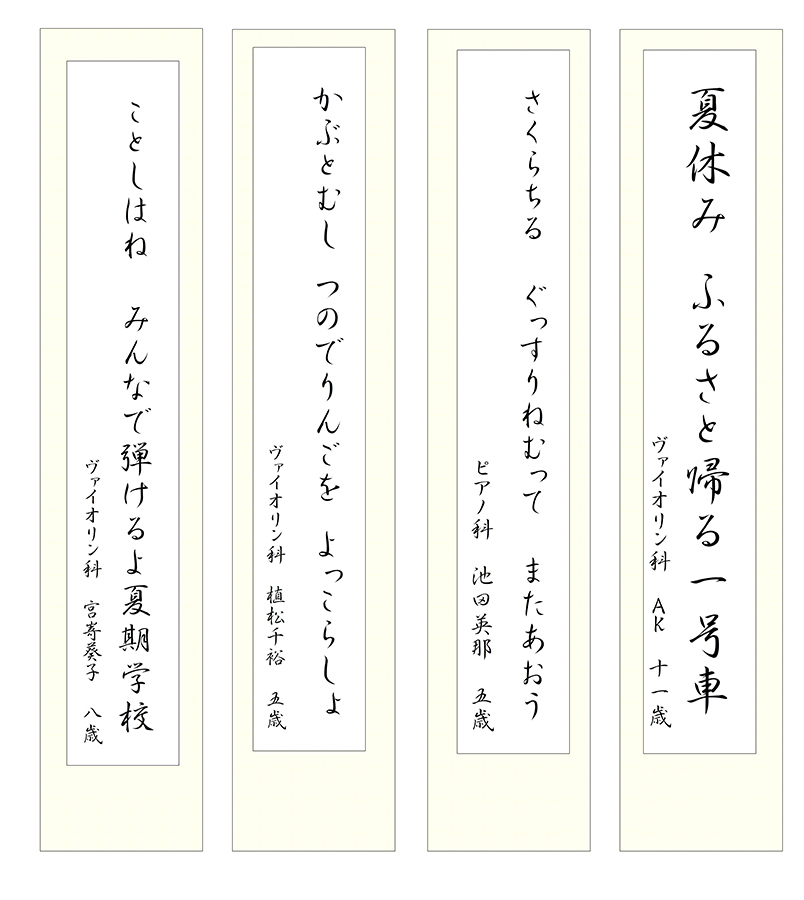 夏休み ふるさと帰る一号車
ヴァイオリン科 AK 十一歳
さくらちる ぐっすりねむって またあおう
ピアノ科 池田英那 五歳
かぶとむし つのでりんごを よっこらしょ
ヴァイオリン科 植松千裕 五歳
ことしはね みんなで弾けるよ夏期学校
ヴァイオリン科 宮嵜葵子 八歳